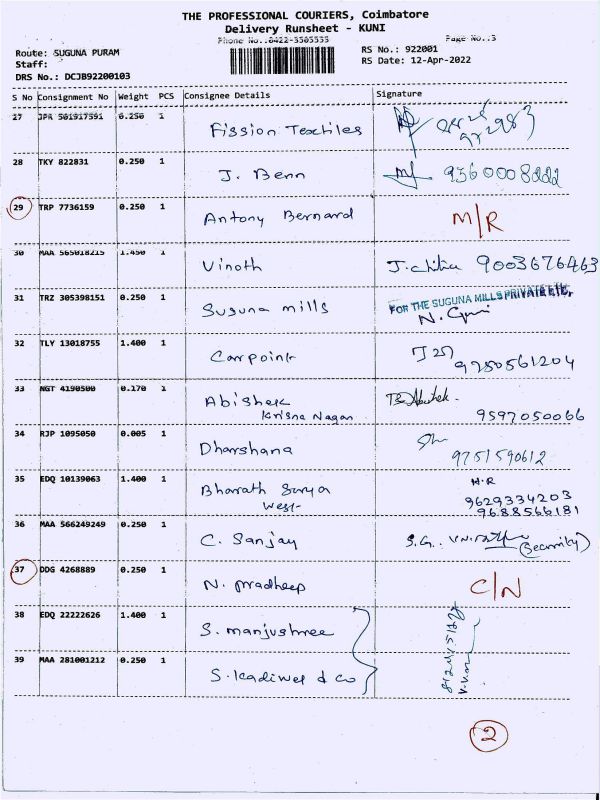 THE PROFESSIONAL COURIERS, Coimbatore
Delivery Runsheet - KUNI
Phone No.:0422-3505555 Page No.:3
Route: SUGUNA PURAM RS No.: 922001
Staff: RS Date: 12-Apr-2022
DRS No.: DCJB92200103
S No Consignment No Weight PCS Consignee Details Signature
27 JPR 501917591 0.250 1 Fission Textiles
28 TKY 822831 0.250 1 J. Benn
29 TRP 7736159 0.250 1 Antony Bernard M/R
30 MAA 565018215 1.450 1 Vinoth 9003676463
31 TRZ 305398151 0.250 1 Suguna mills FOR THE SUGUNA MILLS PRIVATE LTD,
32 TLY 13018755 1.400 1 Carpoint 9750561204
33 NGT 4190500 0.170 1 Abishek
Krisna Nagar 9597050066
34 RJP 1095050 0.005 1 Dharshana 9751590612
35 EDQ 10139063 1.400 1 Bharath Surya H.R
West 9629334203
9688566181
36 MAA 566249249 0.250 1 C. Sanjay S.G. (Security)
37 DDG 4268889 0.250 1 N. pradheep C/N
38 EDQ 22222626 1.400 1 S. manjushree
39 MAA 281001212 0.250 1 S. kadivel & co
2